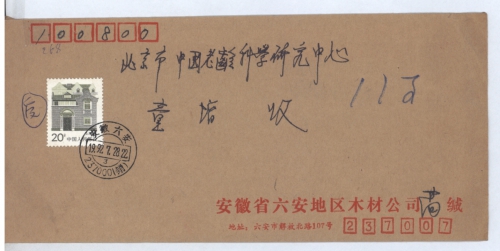 100800
北京市 中国老龄科学研究中心
收
20分 中国人民邮政
安徽六安
1992.7.28.22
237000
安徽省六安地区木材公司
地址：六安市解放北路107号
237007